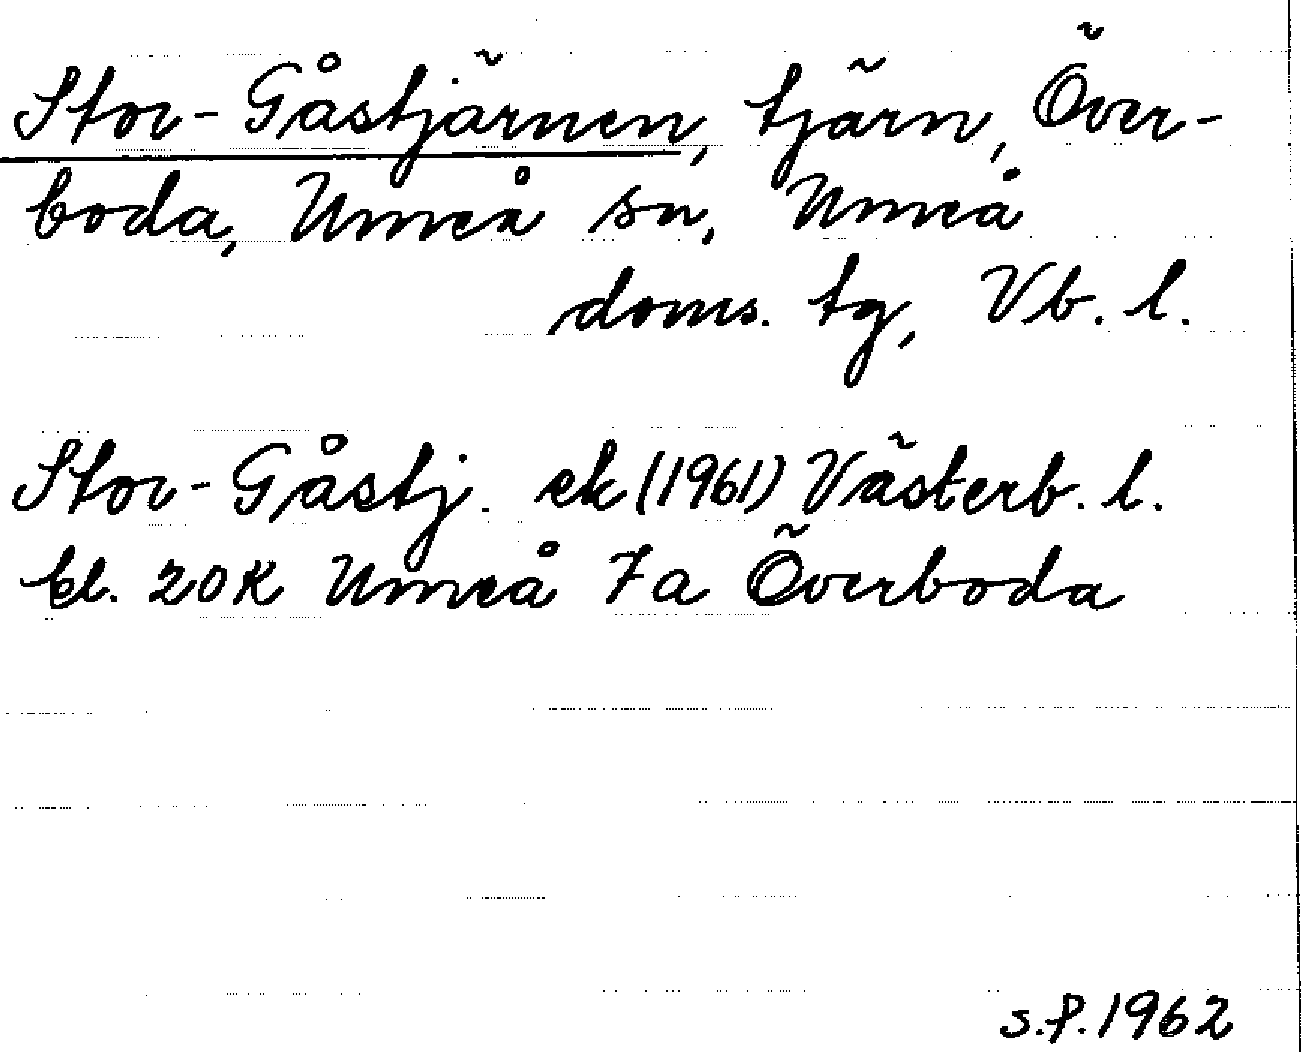 Stor-Gåstjärnen, tjärn, Över-
boda, Umeå sn, Umeå
doms. tg, Vb. l.
Stor-Gåstj. ek (1961) Västerb. l.
bl. 20K Umeå 7a Överboda
s.f. 1962